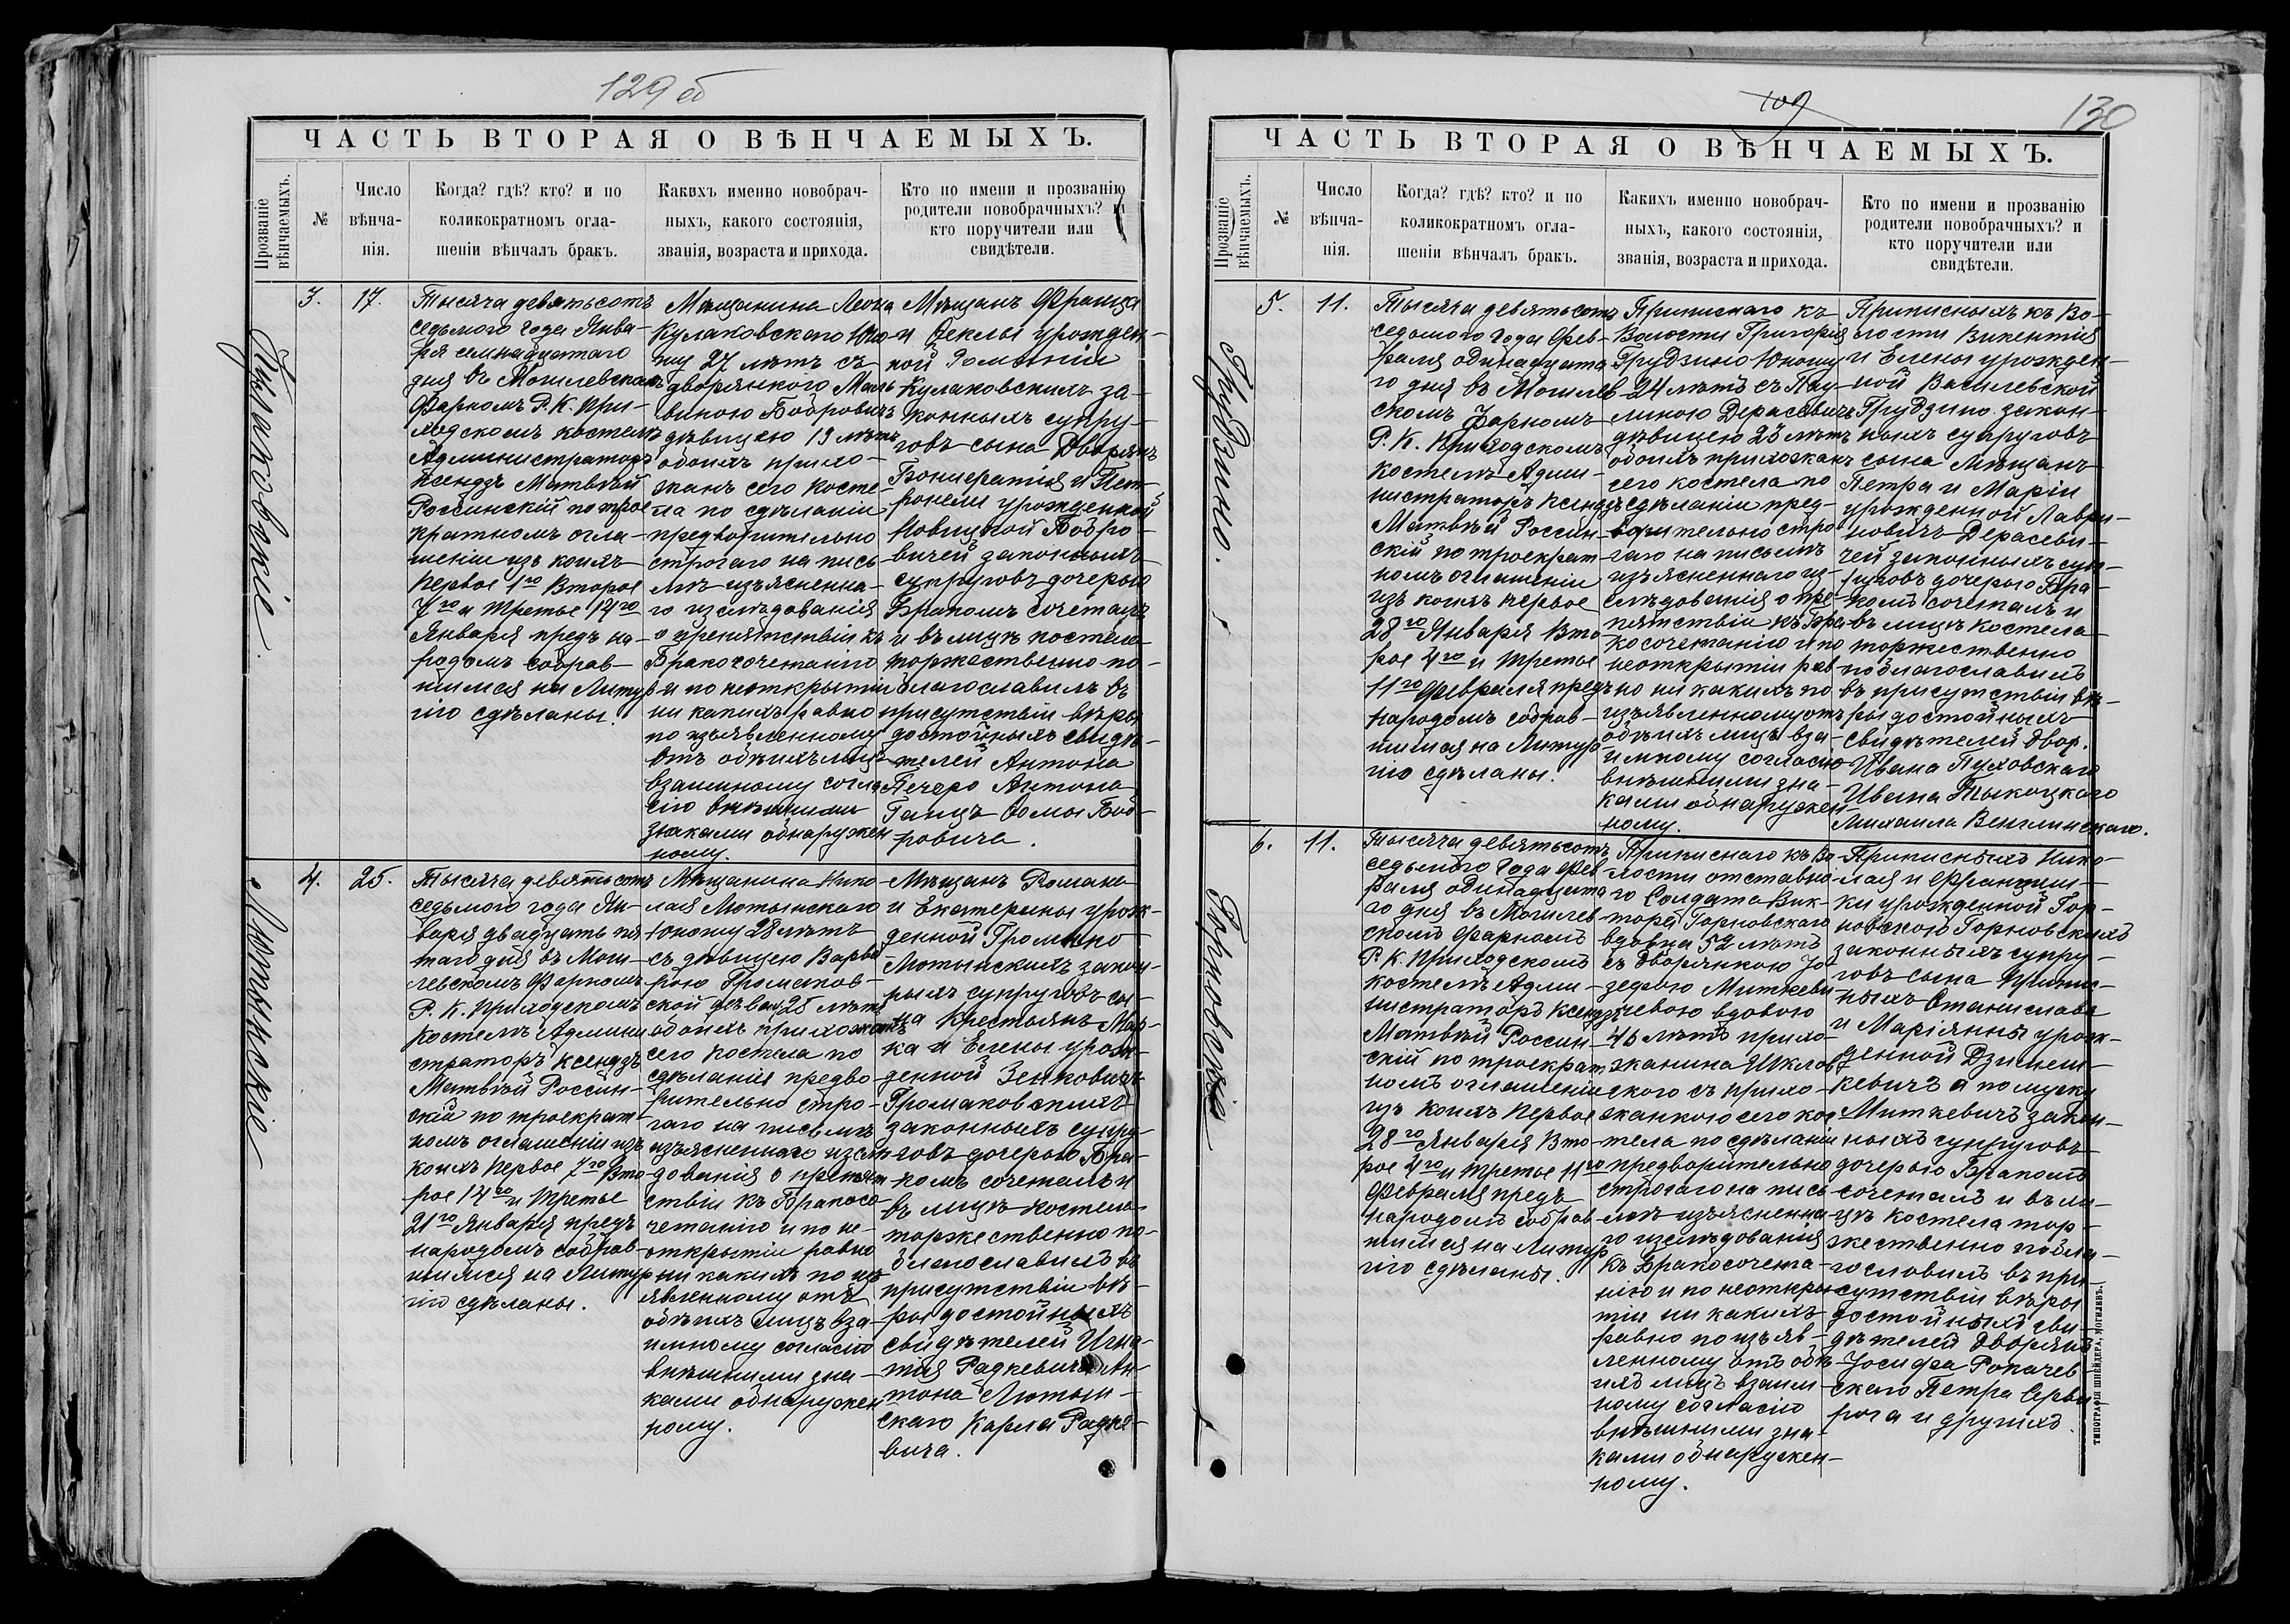 129 об
ЧАСТЬ ВТОРАЯ О ВѢНЧАЕМЫХЪ.
Прозваніе вѣнчаемыхъ.
№
Число вѣнча-нія.
Когда? гдѣ? кто? и по
коликократномъ огла-
шеніи вѣнчалъ бракъ.
Какихъ именно новобрач-
ныхъ, какого состоянія,
званія, возраста и прихода.
Кто по имени и прозванію
родители новобрачныхъ? и
кто поручители или
свидѣтели.
Кулаковскіе
3.
17.
Тысяча девятьсотъ
седьмого года Янва-
ря семнадцатаго
дня въ Могилевскомъ
Фарномъ Р. К. при-
ходскомъ костелѣ
Администраторъ
Ксендзъ Матвѣй
Россинскій по трое
кратномъ огла-
шеніи изъ коихъ
первое 1го Второе
7го и третье 14го
Января предъ на-
родомъ собрав-
шимся на Литур
гію сдѣланы.
Мѣщанина Леона
Кулаковскаго Юно-
шу 27 лѣтъ съ
дворянкого Маль
виною Бобровичъ
дѣвицею 19 лѣтъ
обоихъ прихо-
жанъ сего косте-
ла по сдѣланіи
предворительно
строгаго на пись
мѣ изъясненна-
го изслѣдованія
о препятствіи къ
Бракосочетанію
и по неоткрытіи
ни какихъ равно
по изъявленному
отъ обѣихъ лицъ
взаимному согла
сію внѣшними
знаками обнаружен
ному.
Мѣщанъ Франца
и Феклы урожден-
ной Романіи
Кулаковскихъ за-
конныхъ супру-
говъ сына Дворянъ
Бонифатія и Пет-
ронели урожденной
Новицкой Бобро-
вичей законныхъ
супруговъ дочерью
Бракомъ сочеталъ
и въ лицѣ костела
торжественно по-
благославилъ въ
присутствіи вѣры
достойныхъ свидѣ-
телей Антона
Печеро Антона
Ганцъ Фомы Боб-
ровича.
Лютынскіе
4.
25.
Тысяча девятьсотъ
седьмого года Ян-
варя двадцать пя
таго дня въ Моги-
левскомъ Фарномъ
Р. К. приходскомъ
костелѣ Админи
страторъ Ксендзъ
Матвѣй Россин-
скій по троекрат-
номъ оглашеніи изъ
коихъ первое 7го Вто
рое 14го и третье
21го Января предъ
народомъ собрав-
шимся на Литур
гію сдѣланы.
Мѣщанина Нико
лая Лютынскаго
Юношу 28 лѣтъ
съ дѣвицею Варва
рою Громаков-
ской 28 лѣтъ
обоихъ прихожанъ
сего костела по
сдѣланія предво
рительно стро-
гаго на письмѣ
изъясненнаго изслѣ
дованія о препят
ствіи къ Бракосо
четанію и по не-
открытіи равно
ни какихъ по изъ
явленному отъ
обѣихъ лицъ вза-
имному согласію
внѣшними зна-
ками обнаружен
ному.
Мѣщанъ Романа
и Екатерины урож-
денной Громыко
Лютынскихъ закон-
ныхъ супруговъ сы-
на Крестьянъ Мар-
ка и Елены урож-
денной Зенковичъ
Громаковскихъ
законныхъ супру-
говъ дочерью Бра-
комъ сочеталъ и
въ лицѣ костела
торжественно по-
благославилъ въ
присутствіи вѣ-
ры достойныхъ
свидѣтелей Игна-
тія Радкевича Ан-
тона Лютын-
скаго Карла Радке-
вича.
109
130
ЧАСТЬ ВТОРАЯ О ВѢНЧАЕМЫХЪ.
Прозваніе вѣнчаемыхъ.
№
Число вѣнча-нія.
Когда? гдѣ? кто? и по
коликократномъ огла-
шеніи вѣнчалъ бракъ.
Какихъ именно новобрач-
ныхъ, какого состоянія,
званія, возраста и прихода.
Кто по имени и прозванію
родители новобрачныхъ? и
кто поручители или
свидѣтели.
Грудзино.
5.
11.
Тысяча девятьсотъ
седьмого года Фев-
раля одинадцата
го дня въ Могилев
скомъ Фарномъ
Р. К. Приходскомъ
костелѣ Адми-
нистраторъ Ксендзъ
Матвѣй Россин-
скій по троекрат
номъ оглашеніи
изъ коихъ первое
28го Января Вто
рое 4го и третье
11го Февраля предъ
народомъ собрав-
шимся на Литур
гію сдѣланы.
Приписнаго къ
Волости Григорія
Грудзино Юношу
24 лѣтъ съ Пау-
линою Дерасевичъ
дѣвицею 23 лѣтъ
обоихъ прихожанъ
сего костела по
сдѣланіи пред-
ворительно стро
гаго на письмѣ
изъясненнаго из-
слѣдованія о пре-
пятствіи къ Бра-
косочетанію и по
неоткрытіи рав
но ни какихъ по
изъявленному отъ
обѣихъ лицъ вза-
имному согласію
внѣшними зна-
ками обнаружен-
ному.
Приписныхъ къ Во-
лости Викентія
и Елены урожден-
ной Василевской
Грудзино закон-
ныхъ супруговъ
сына Мѣщанъ
Петра и Маріи
урожденной Лаври-
новичъ Дерасеви-
чей законныхъ суп-
руговъ дочерью Бра-
комъ сочеталъ и
въ лицѣ костела
торжественно
поблагославилъ
въ присутствіи вѣ-
ры достойныхъ
свидѣтелей Двор.
Ивана Пуховскаго
Ивана Тыкоцкаго
Михаила Венглинскаго.
Горновскіе
6.
11.
Тысяча девятьсотъ
седьмого года Фев
раля одинадцата
го дня въ Могилев
скомъ Фарномъ
Р. К. Приходскомъ
костелѣ Адми-
нистраторъ Ксендзъ
Матвѣй Россин-
скій по троекрат
номъ оглашеніи
изъ коихъ Первое
28го Января Вто-
рое 4го и третье 11го
Февраля предъ
народомъ собрав
шимся на Литур
гію сдѣланы.
Приписнаго къ Во
лости отставно
го Солдата Вик-
тора Горновскаго
вдовца 52 лѣтъ
съ Дворянкою Іо
зефою Миткеви
чевою вдовою
46 лѣтъ прихо-
жанина Шклов
ского съ прихо-
жанкою сего кос
тела по сдѣланіи
предворительно
строгаго на пись
мѣ изъясненна
го изслѣдованія
къ Бракосочета-
нію и по неоткры
тіи ни какихъ
равно по изъяв-
ленному отъ обѣ
ихъ лицъ взаим
ному согласію
внѣшними зна-
ками обнаружен-
ному.
Приписныхъ Нико-
лая и Францыш-
ки урожденной Гор-
новскою Горновскихъ
законныхъ супру-
говъ сына Припис-
ныхъ Станислава
и Маріянны урож-
денной
кевичъ а по мужу
Миткевичъ закон-
ныхъ супруговъ
дочерью Бракомъ
сочеталъ и въ ли-
цѣ костела тор-
жественно побла-
гословилъ въ при-
сутствіи вѣры
достойныхъ сви-
дѣтелей Дворянъ
Іосифа Рокачев
скаго Петра
и другихъ.
ТИПОГРАФІЯ ШНЕЙДЕРА, МОГИЛЕВЪ.